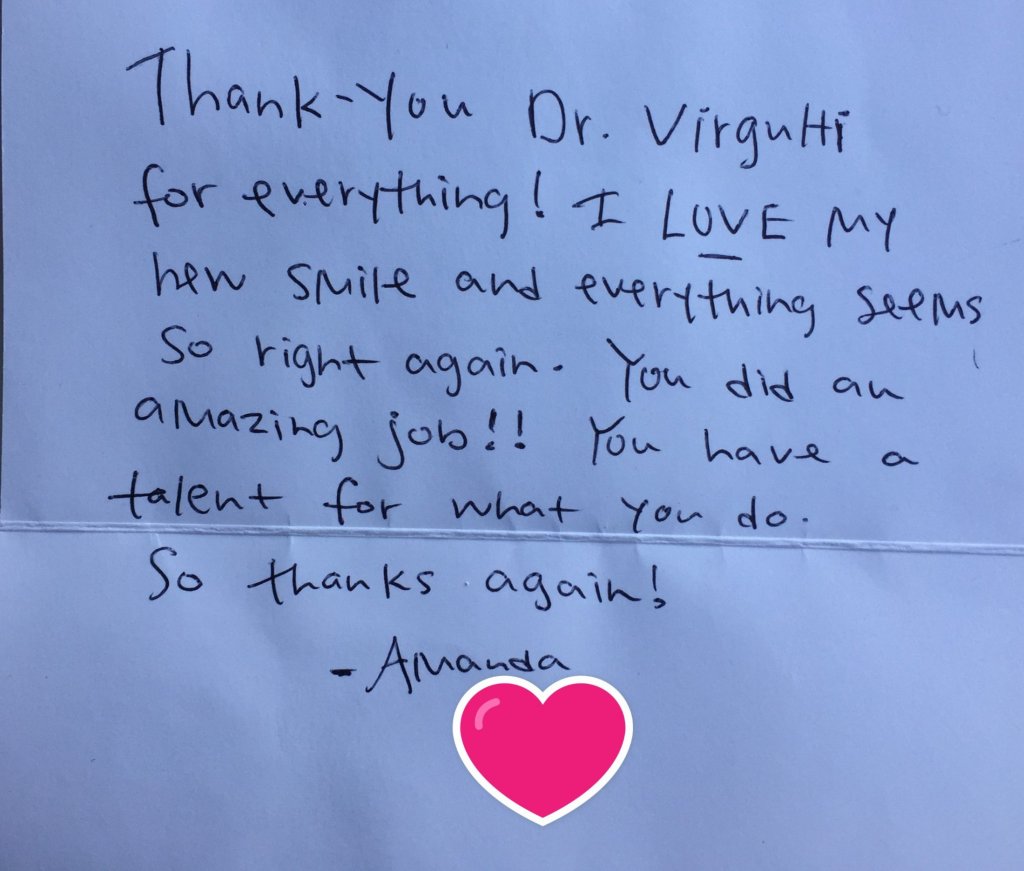 Thank-You Dr. Virgutti
for everything! I LOVE MY
new smile and everything seems
so right again. You did an
amazing job!! You have a
talent for what you do.
So thanks again!
- Amanda